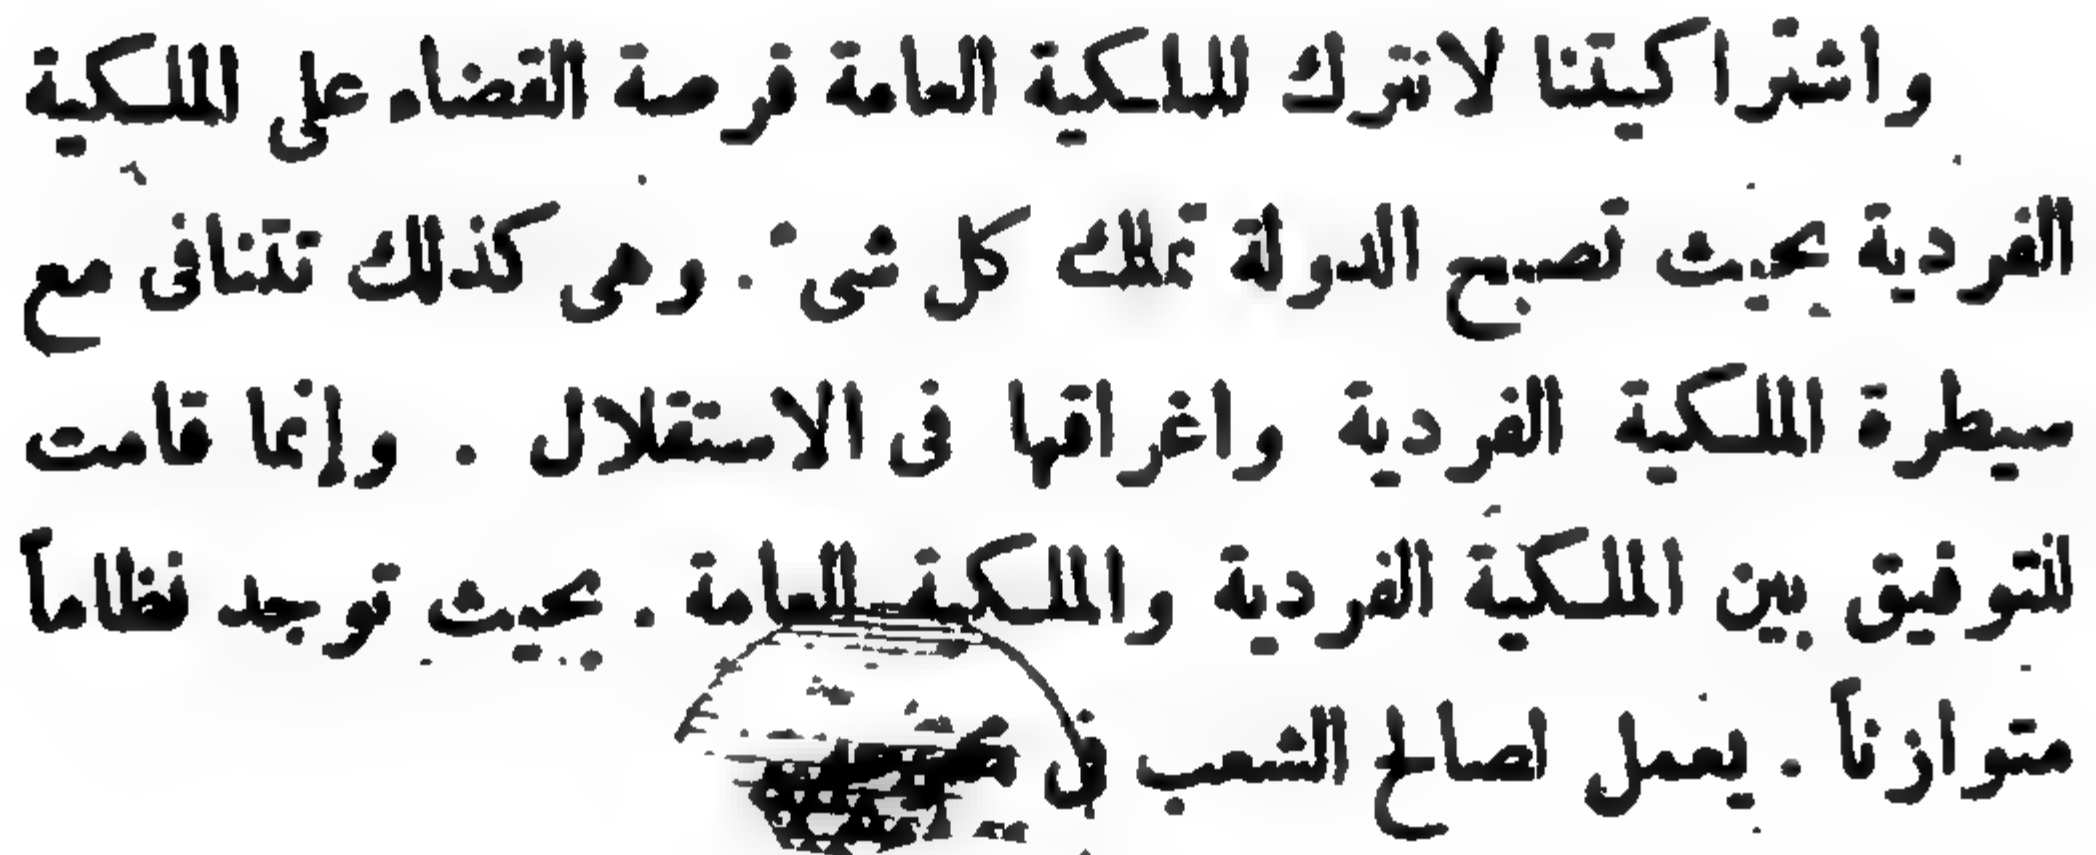 واشتراكيتنا لا تترك للملكية العامة فرصة القضاء على الملكية
الفردية بحيث تصبح الدولة تملك كل شىء . وهى كذلك تتنافى مع
سيطرة الملكية الفردية واغراقها فى الاستقلال . وإنما قامت
للتوفيق بين الملكية الفردية والملكية العامة . بحيث توجد نظاماً
متوازناً . يعمل لصالح الشعب فى